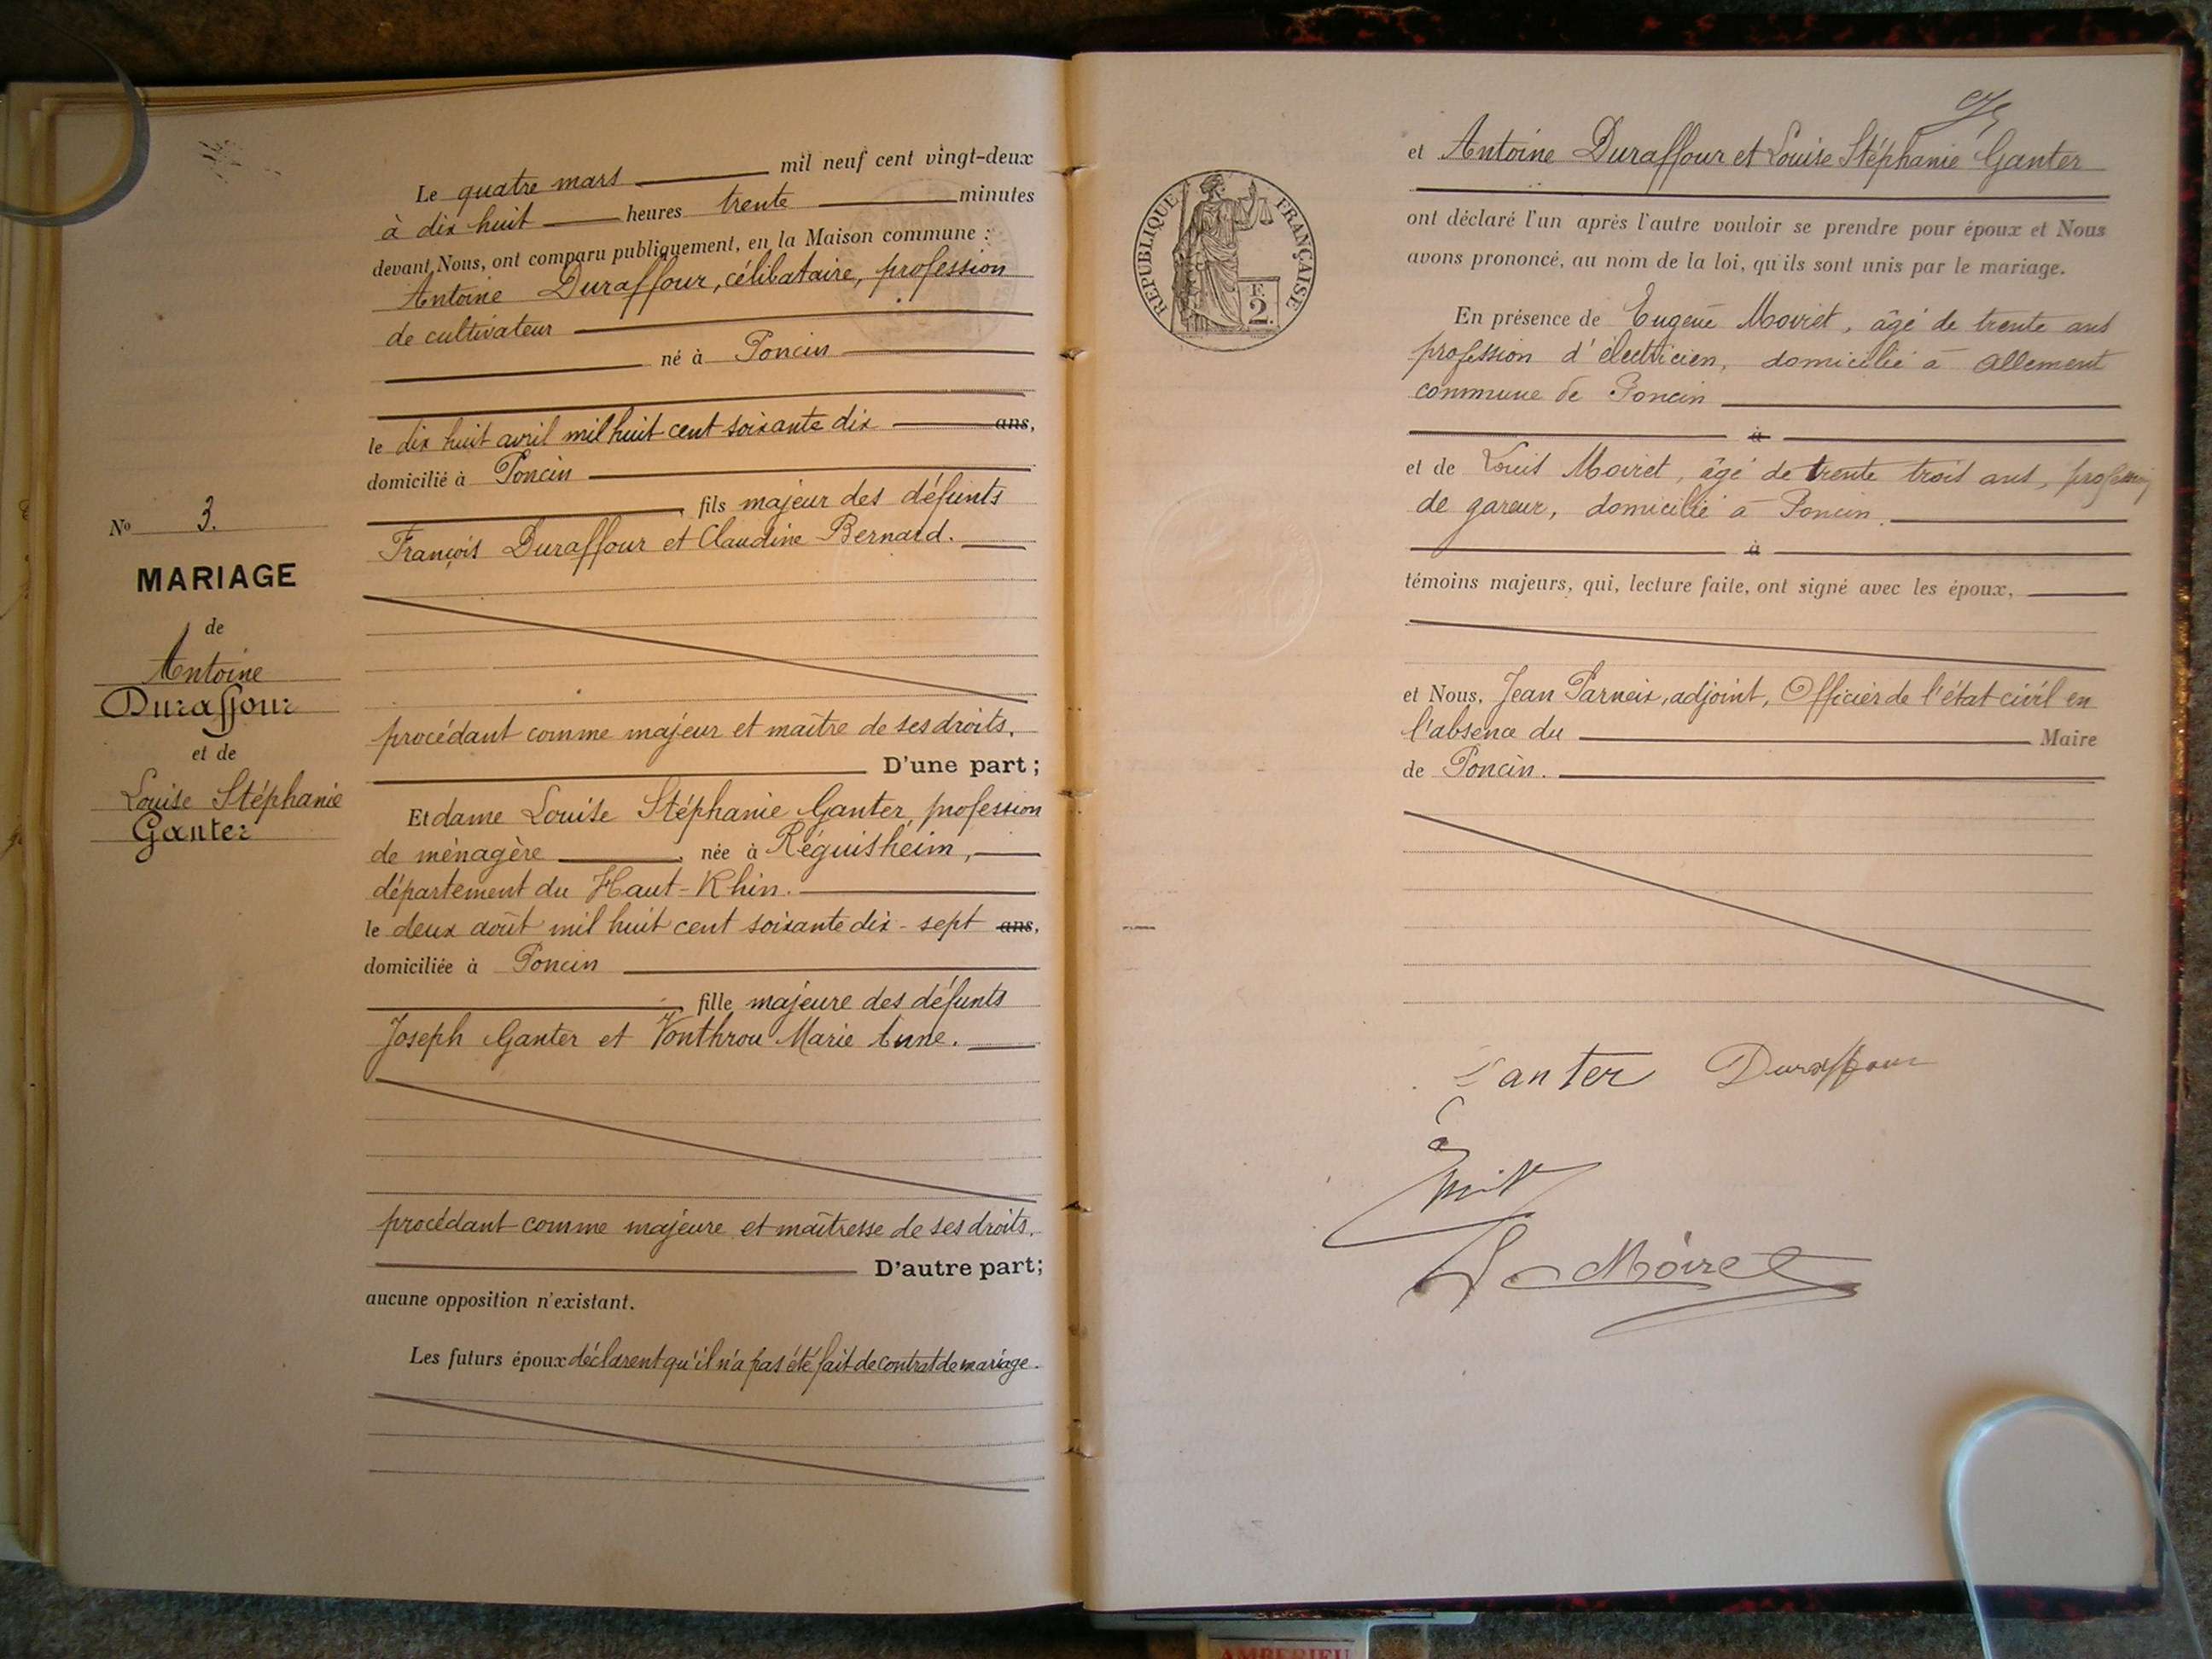 No 3.
MARIAGE
de
Antoine
Duraffour
et de
Louise Stéphanie
Ganter
Le quatre mars mil neuf cent vingt-deux
à dix huit heures trente minutes
devant Nous, ont comparu publiquement, en la Maison commune :
Antoine Duraffour, célibataire, profession
de cultivateur
né à Poncin
le dix huit avril mil huit cent soixante dix ans,
domicilié à Poncin
, fils majeur des défunts
François Duraffour et Claudine Bernard.
procédant comme majeur et maître de ses droits.
D'une part ;
Et dame Louise Stéphanie Ganter, profession
de ménagère, née à Réguisheim,
département du Haut-Rhin.
le deux août mil huit cent soixante dix-sept ans,
domiciliée à Poncin
, fille majeure des défunts
Joseph Ganter et Vonthrou Marie Anne.
procédant comme majeure et maîtresse de ses droits.
D'autre part;
aucune opposition n'existant.
Les futurs époux déclarent qu'il n'a pas été fait de contrat de mariage.
RÉPUBLIQUE FRANÇAISE
F.
2.
et Antoine Duraffour et Louise Stéphanie Ganter
ont déclaré l'un après l'autre vouloir se prendre pour époux et Nous
avons prononcé, au nom de la loi, qu'ils sont unis par le mariage.
En présence de Eugène Moiret, âgé de trente ans
profession d'électricien, domicilié à Allement
commune de Poncin
à
et de Louis Moiret, âgé de trente trois ans, profession
de gareur, domicilié à Poncin.
à
témoins majeurs, qui, lecture faite, ont signé avec les époux,
et Nous, Jean Parneix, adjoint, Officier de l'état civil en
l'absence du Maire
de Poncin.
Ganter Duraffour
Moiret
AMBERIEU